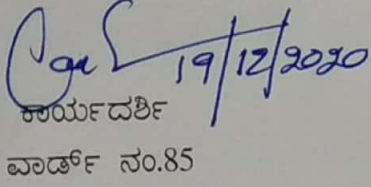 19/12/2020
ಕಾರ್ಯದರ್ಶಿ
ವಾರ್ಡ್ ನಂ.85